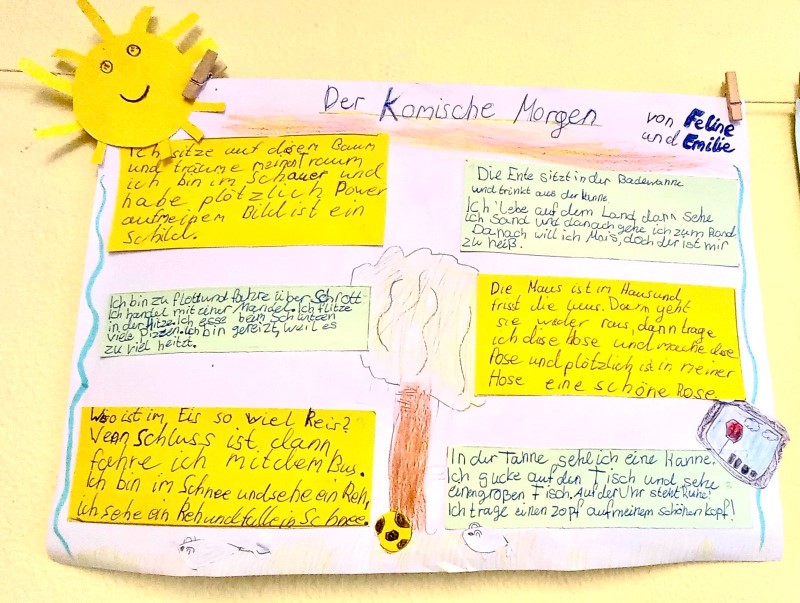 Der Komische Morgen
von Feline
und Emilie
Ich sitze auf disem Baum
und träume meinen Traum
ich bin im Schauer und
habe plötzlich Power
auf meinem Bild ist ein
Schild.
Die Ente sitzt in der Badewanne
und trinkt aus der Kanne.
Ich lebe auf dem Land, dann sehe
ich Sand und danach gehe ich zum Rand.
Danach will ich Mais, doch der ist mir
zu heiß.
Ich bin zu flott und fahre über Schrott
Ich handel mit einer Mandel. Ich flitze
in der Hitze. Ich esse beim Schwitzen
viele Pizzen. Ich bin gereizt, weil es
zu viel heitzt.
Die Maus ist im Haus und
frist die Laus. Dann geht
sie wieder raus, dann trage
ich diese Hose und mache diese
Pose und plötzlich ist in meiner
Hose eine schöne Rose
Wo ist im Eis so viel Reis?
Wenn Schluss ist dann
fahre ich mit dem Bus.
Ich bin im Schnee und sehe ein Reh,
ich sehe ein Reh und falle in Schnee.
In der Tanne seh ich eine Kanne.
Ich gucke auf den Tisch und sehe
einen großen Tisch. Auf der Uhr steht Ruhe!
Ich trage einen Zopf auf meinem schönen Kopf!